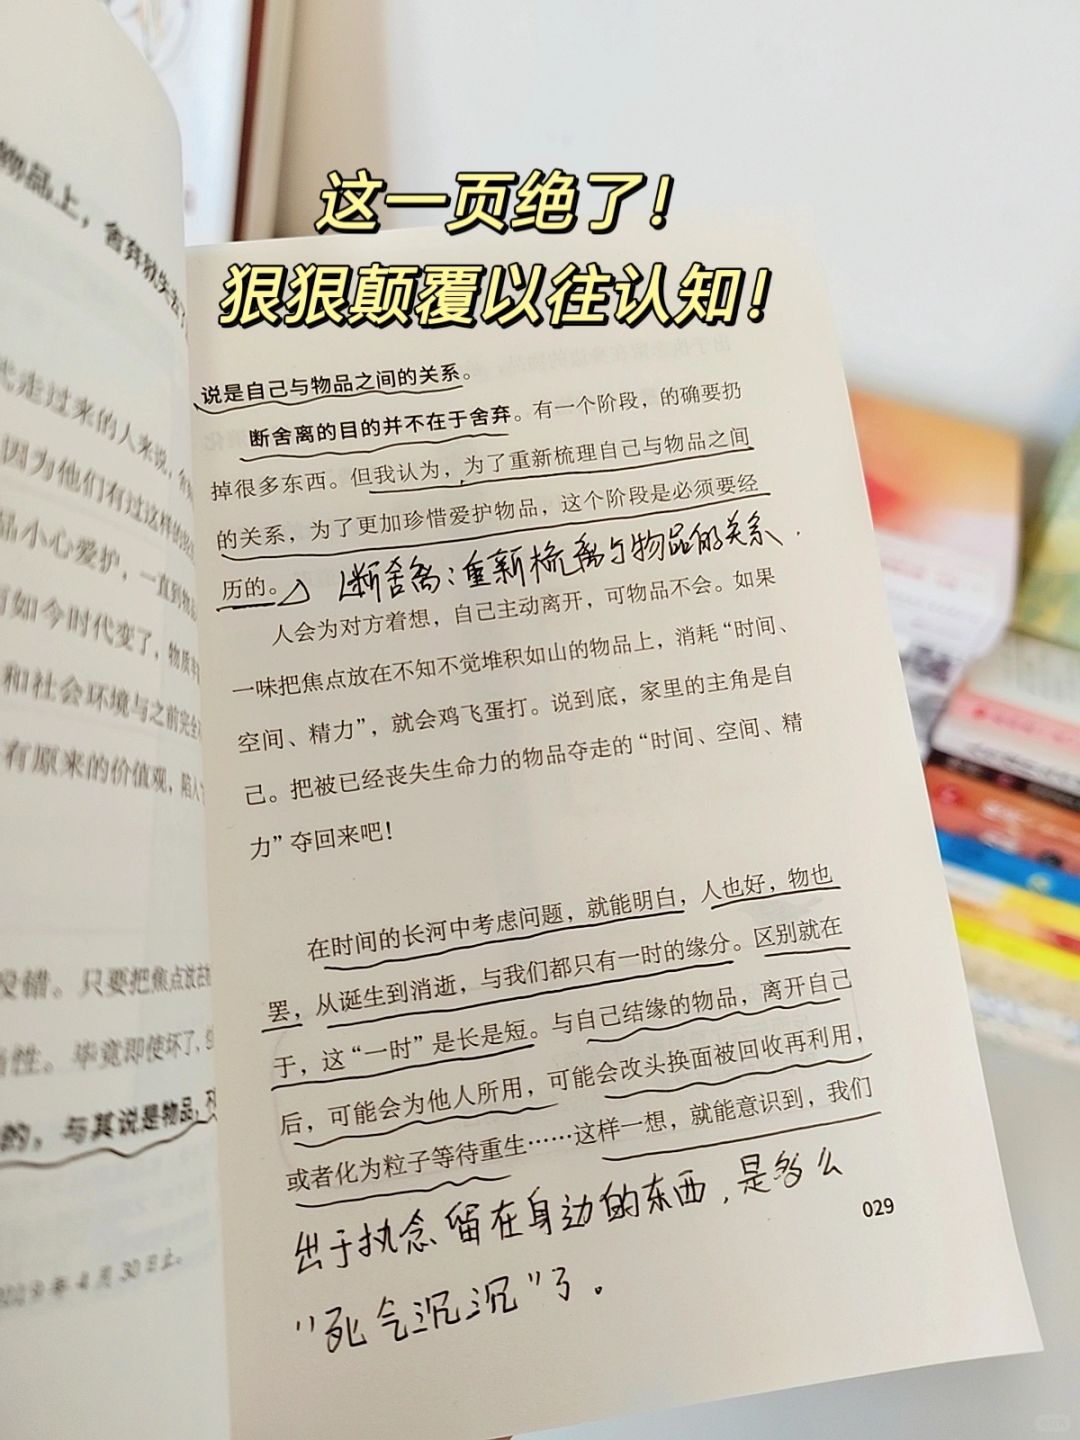 这一页绝了!
狠狠颠覆以往认知!
物品上，舍弃
式走过来的人来说，舍
因为他们有过这样的
品小心爱护，一直到物
如今时代变了，物质丰
和社会环境与之前完全
有原来的价值观，陷入
没错。只要把焦点放在
性。毕竟即使坏了，
的，与其说是物品，不
2019年4月30日止。
说是自己与物品之间的关系。
断舍离的目的并不在于舍弃。有一个阶段，的确要扔
掉很多东西。但我认为，为了重新梳理自己与物品之间
的关系，为了更加珍惜爱护物品，这个阶段是必须要经
历的。
断舍离：重新梳离与物品的关系.
人会为对方着想，自己主动离开，可物品不会。如果
一味把焦点放在不知不觉堆积如山的物品上，消耗“时间、
空间、精力”，就会鸡飞蛋打。说到底，家里的主角是自
己。把被已经丧失生命力的物品夺走的“时间、空间、精
力”夺回来吧!
在时间的长河中考虑问题，就能明白，人也好，物也
罢，从诞生到消逝，与我们都只有一时的缘分。区别就在
于，这“一时”是长是短。与自己结缘的物品，离开自己
后，可能会为他人所用，可能会改头换面被回收再利用，
或者化为粒子等待重生……这样一想，就能意识到，我们
出于执念留在身边的东西，是多么
"死气沉沉"了。
029